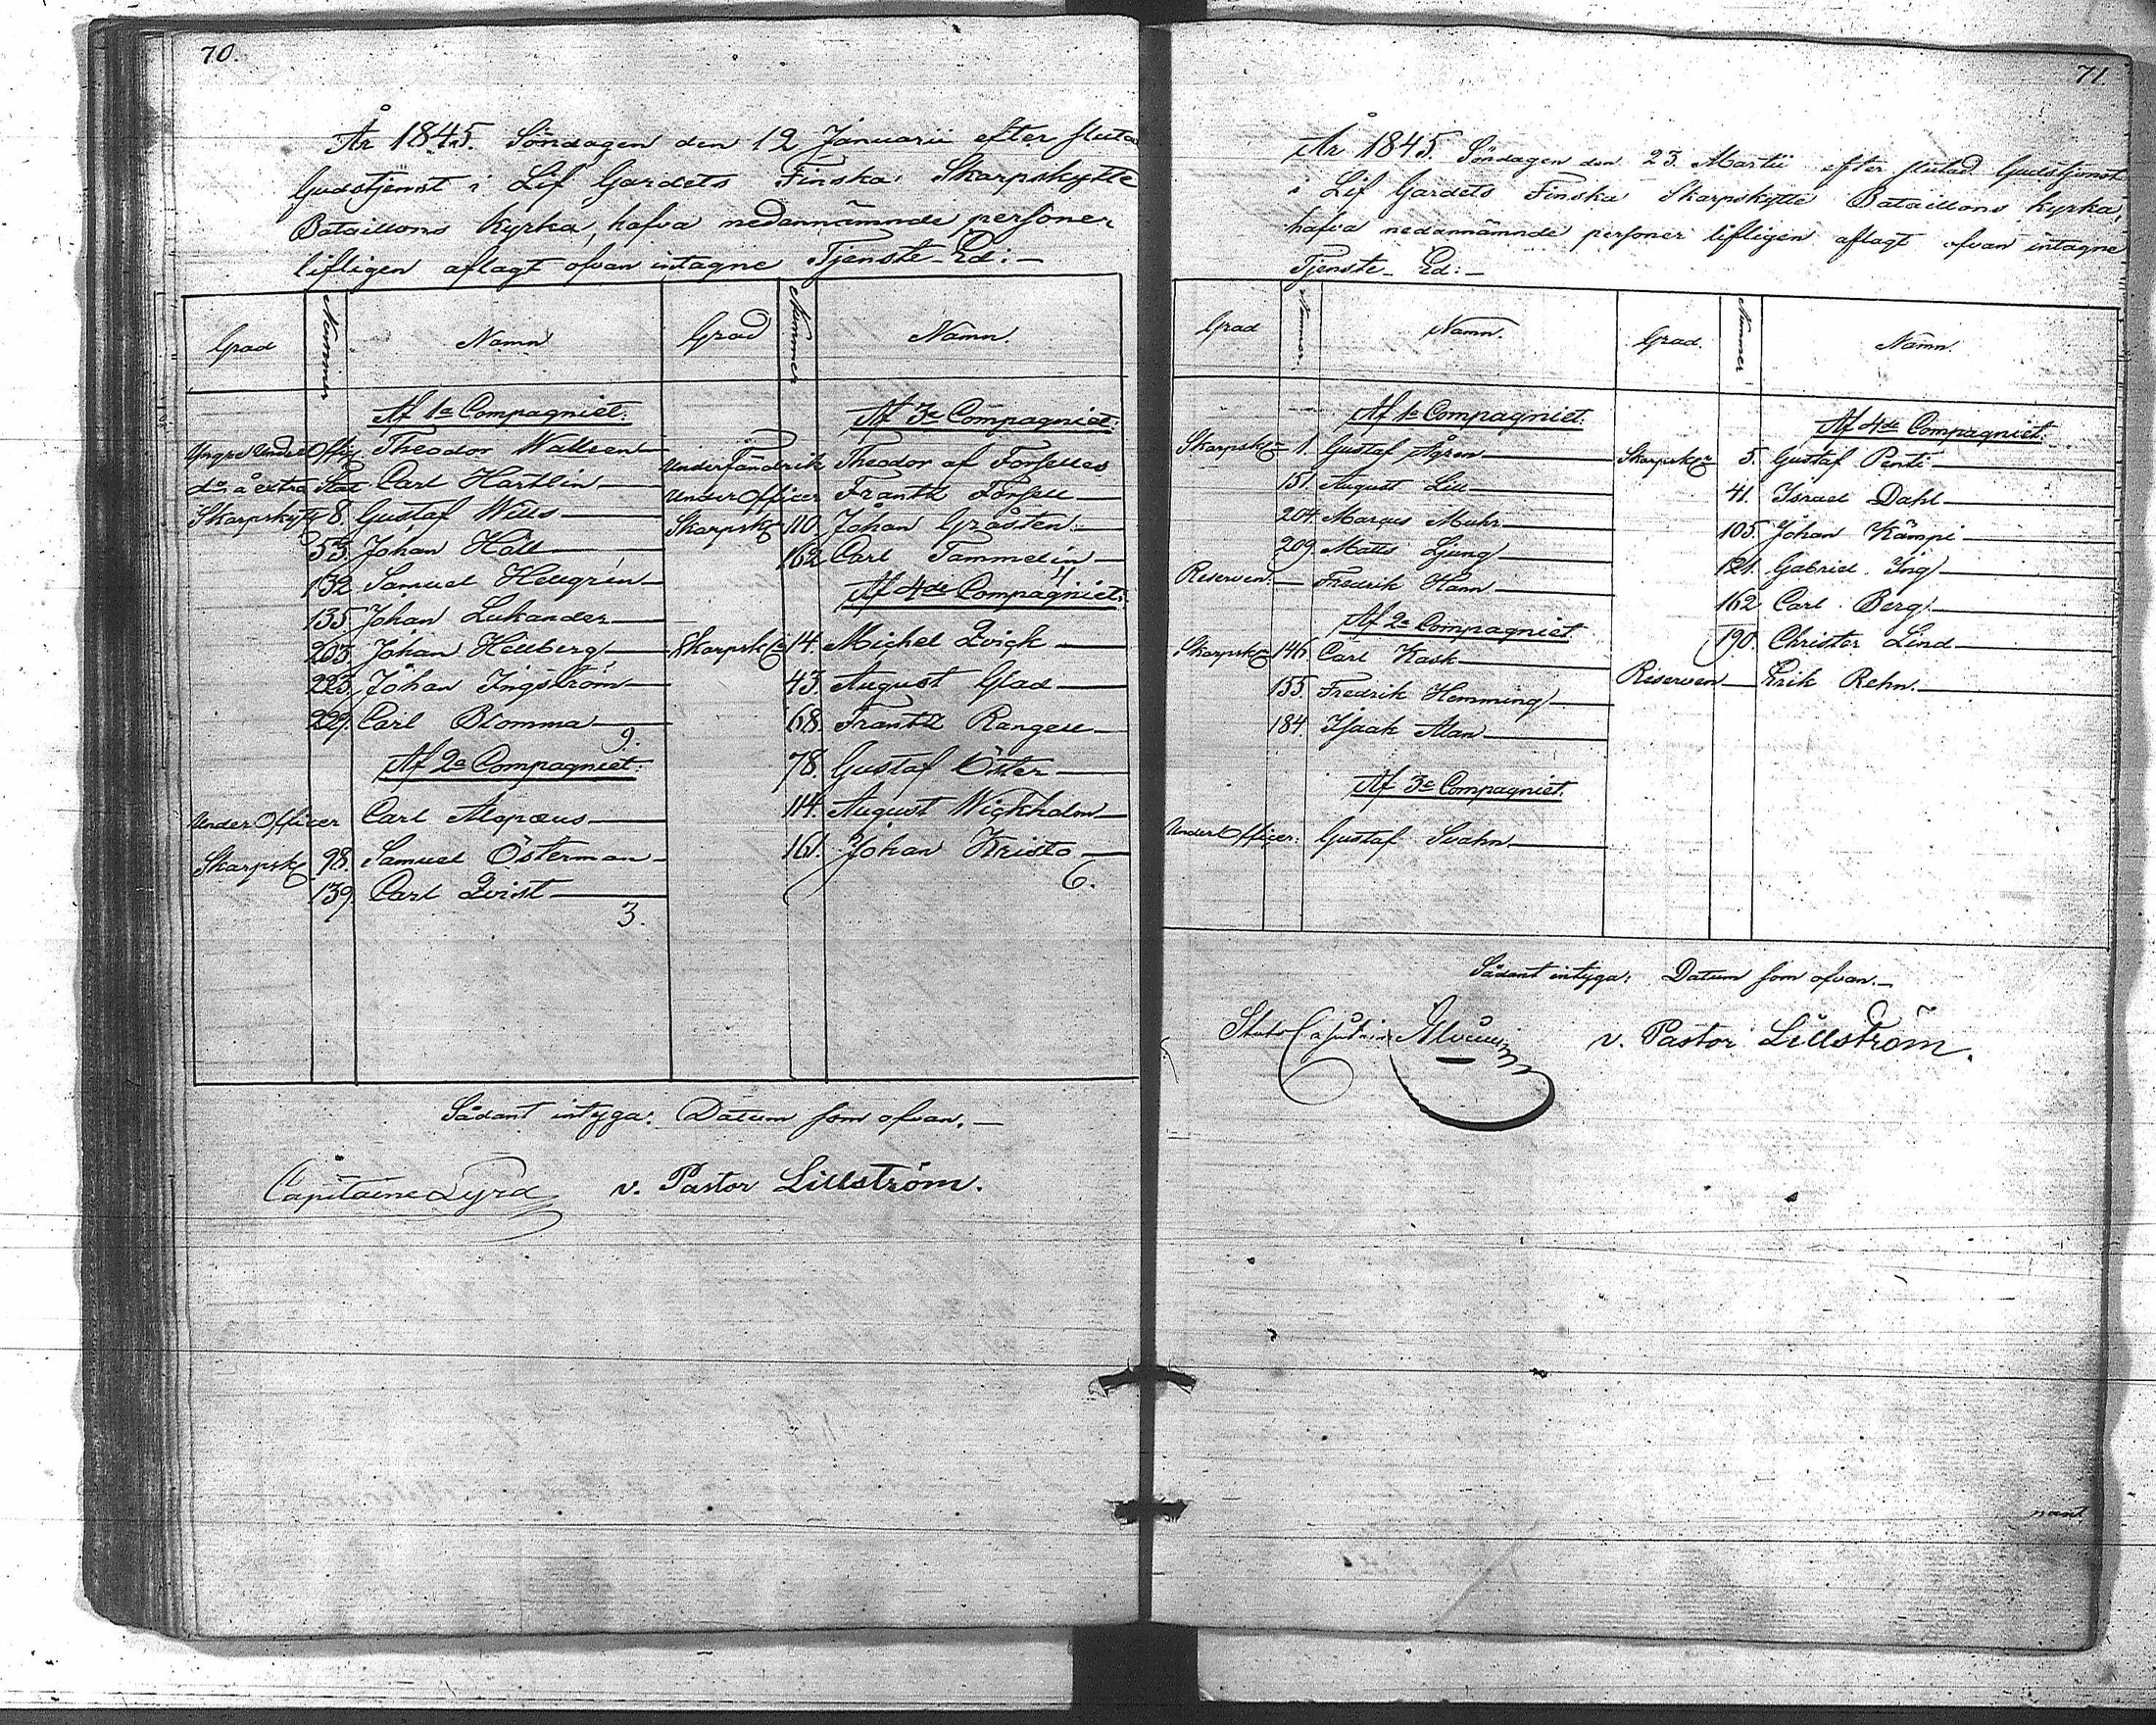 70.
År 1845. Söndagen den 12 Januarii efter slutad
Gudstjenst i Lif Gardets Finska Skarpskytte
Bataillons Kyrka, hafva nedannämnde personer
lifligen aflagt ofvan intagne Tjenste-Ed:-
Grad Nummer Namn Grad Nummer Namn.
Af 1a Compagniet.
Yngre Under Offic. Theodor Walleen
do å extra Stat Carl Hartlin
Skarpsk. 8. Gustaf Wills
53. Johan Häll
132 Samuel Hellgrén
135 Johan Lukander
203. Johan Hellberg
223. Johan Ingström
229. Carl Blomma
9.
Af 2a Compagniet.
Under Officer Carl Alopæus
Skarpsk. 98. Samuel Österman
139. Carl Qvist
3.
Af 3e Compagniet.
Underfändrik Theodor af Forselles
Under Officer Frantz Forsell
Skarpsk. 110. Johan Gråsten
162 Carl Tammelin
4
Af 4de Compagniet.
Skarpsk. 14. Michel Qvick
43. August Glad
68. Frantz Rangell
78. Gustaf Öster
114. August Wickholm
161. Johan Kristo
6.
Sådant intyga: Datum som ofvan.-
Capitaine Lyra v. Pastor Lillström.
71.
År 1845. Söndagen den 23. Martii efter slutad Gudstjenst
i Lif Gardets Finska Skarpskytte Bataillons Kyrka,
hafva nedannämnde personer lifligen aflagt ofvan intagne
Tjenste-Ed:-
Grad Nummer Namn. Grad. Nummer Namn.
Af 1e Compagniet.
Skarpsk. 1. Gustaf Ågren
151. August Lill
204. Marcus Muhr
209. Matts Ljung
Reserven. Fredrik Hann
Af 2a Compagniet
Skarpsk. 146. Carl Kask
155. Fredrik Hemming
184. Isaak Alan
Af 3e Compagniet.
Under Officer. Gustaf Svahn
Af 4de Compagniet.
Skarpsk. 5. Gustaf Penti
41. Israel Dahl
105. Johan Kämpi
121. Gabriel Ing
162 Carl Berg
190. Christer Lind
Reserven Erik Rehn.
Sådant intyga: Datum som ofvan.-
Stabs Capitaine v. Pastor Lillström.